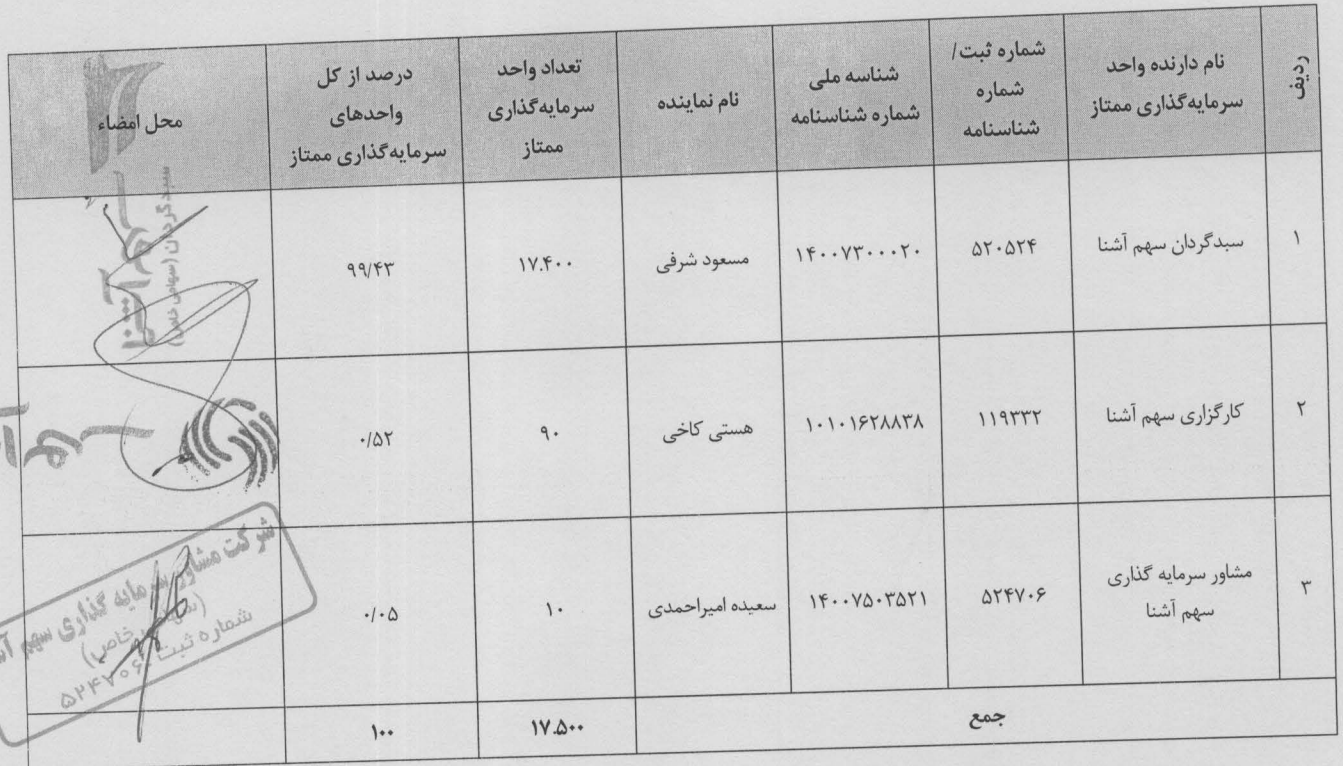 ردیف
نام دارنده واحد
سرمایه‌گذاری ممتاز
شماره ثبت/
شماره
شناسنامه
شناسه ملی
شماره شناسنامه
نام نماینده
تعداد واحد
سرمایه‌گذاری
ممتاز
درصد از کل
واحدهای
سرمایه‌گذاری ممتاز
محل امضاء
۱
سبدگردان سهم آشنا
۵۲۰۵۲۴
۱۴۰۰۷۳۰۰۰۲۰
مسعود شرفی
۱۷.۴۰۰
۹۹/۴۳
سهم آشنا
سبدگردان (سهامی خاص)
۲
کارگزاری سهم آشنا
۱۱۹۳۳۲
۱۰۱۰۱۶۲۸۸۳۸
هستی کاخی
۹۰
۰/۵۲
سهم
۳
مشاور سرمایه گذاری
سهم آشنا
۵۲۴۷۰۶
۱۴۰۰۷۵۰۳۵۲۱
سعیده امیراحمدی
۱۰
۰/۰۵
شرکت مشاور سرمایه گذاری سهم
(سهامی خاص)
شماره ثبت ۵۲۴۷۰۶
جمع
۱۷.۵۰۰
۱۰۰